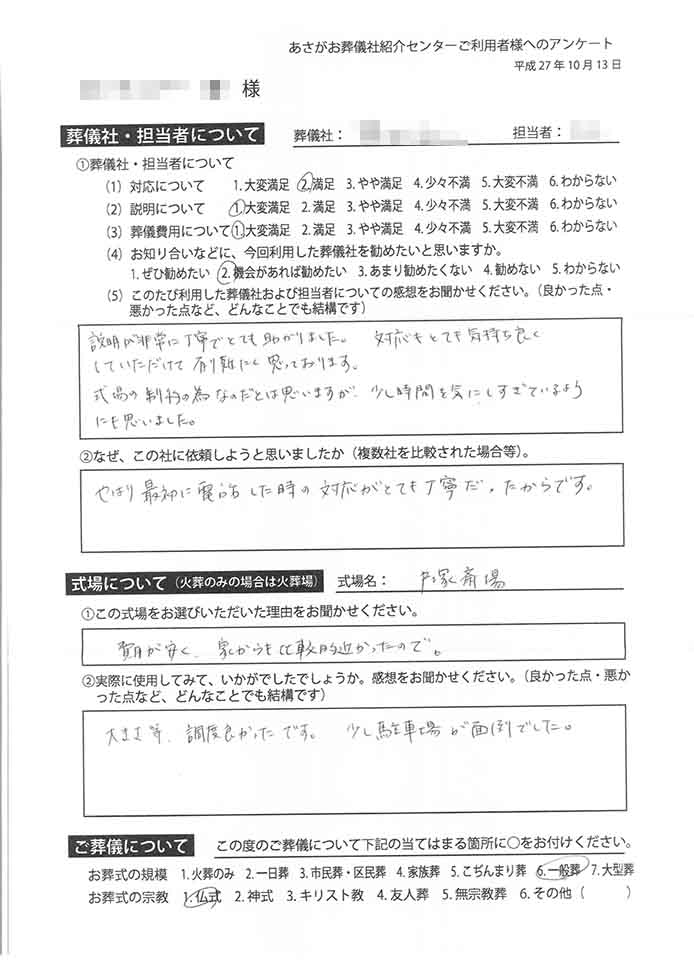 あさがお葬儀社紹介センターご利用者様へのアンケート
平成27年10月13日
様
葬儀社・担当者について 葬儀社： 担当者：
①葬儀社・担当者について
（1）対応について 1.大変満足 2.満足 3.やや満足 4.少々不満 5.大変不満 6.わからない
（2）説明について 1.大変満足 2.満足 3.やや満足 4.少々不満 5.大変不満 6.わからない
（3）葬儀費用について 1.大変満足 2.満足 3.やや満足 4.少々不満 5.大変不満 6.わからない
（4）お知り合いなどに、今回利用した葬儀社を勧めたいと思いますか。
1.ぜひ勧めたい 2.機会があれば勧めたい 3.あまり勧めたくない 4.勧めない 5.わからない
（5）このたび利用した葬儀社および担当者についての感想をお聞かせください。（良かった点・
悪かった点など、どんなことでも結構です）
説明が非常に丁寧でとても助かりました。 対応もとても気持ち良く
していただけて有り難たく思っております。
式場の制約の為なのだとは思いますが、少し時間を気にしすぎているよう
にも思いました。
②なぜ、この社に依頼しようと思いましたか（複数社を比較された場合等）。
やはり最初に電話した時の対応がとても丁寧だったからです。
式場について（火葬のみの場合は火葬場） 式場名： 戸塚斎場
①この式場をお選びいただいた理由をお聞かせください。
費用が安く、家からも比較的近かったので。
②実際に使用してみて、いかがでしたでしょうか。感想をお聞かせください。（良かった点・悪か
った点など、どんなことでも結構です）
大きさ等、調度良かったです。 少し駐車場が面倒でした。
ご葬儀について この度のご葬儀について下記の当てはまる箇所に○をお付けください。
お葬式の規模 1.火葬のみ 2.一日葬 3.市民葬・区民葬 4.家族葬 5.こぢんまり葬 6.一般葬 7.大型葬
お葬式の宗教 1.仏式 2.神式 3.キリスト教 4.友人葬 5.無宗教葬 6.その他（ ）